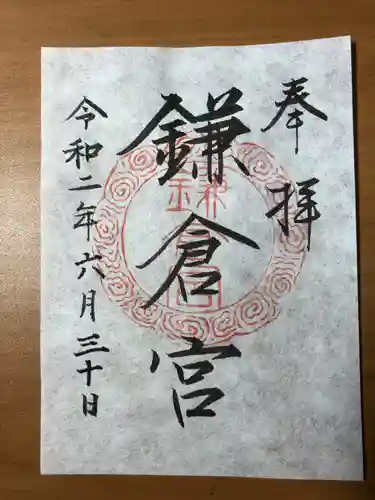 奉拝
鎌倉宮
令和二年六月三十日